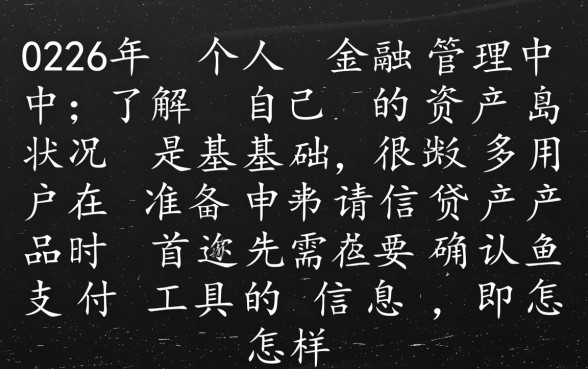 0226年 个人 金融管理中
中；了解 自己 的资产岛
状况 是基基础，很 多用
户在 准备申弗请信贷产产
品时 首 先需 要确认鱼
支付 工具的 信息 ，即怎
怎样